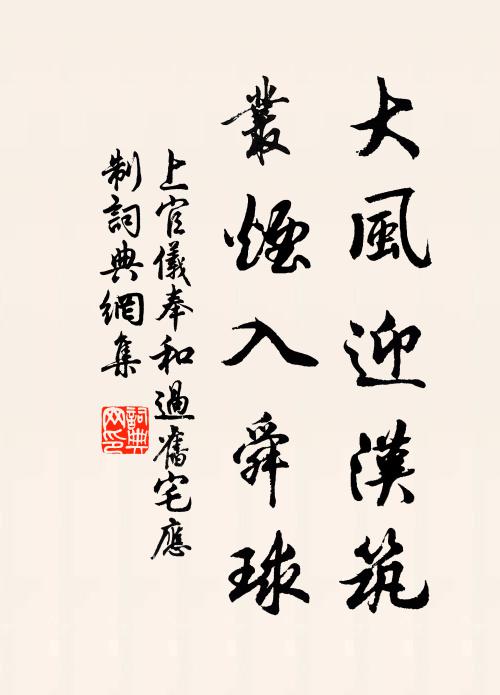 大風迎漢筑
叢煙入舜球
上官儀奉和過舊宅應
制詞典網集
詞典網印